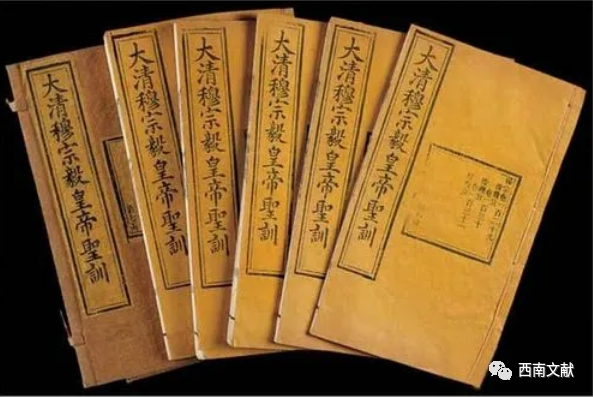 大清穆宗毅皇帝聖訓
大清穆宗毅皇帝聖訓
大清穆宗毅皇帝聖訓
大清穆宗毅皇帝聖訓
大清穆宗毅皇帝聖訓
大清穆宗毅皇帝聖訓
西南文献